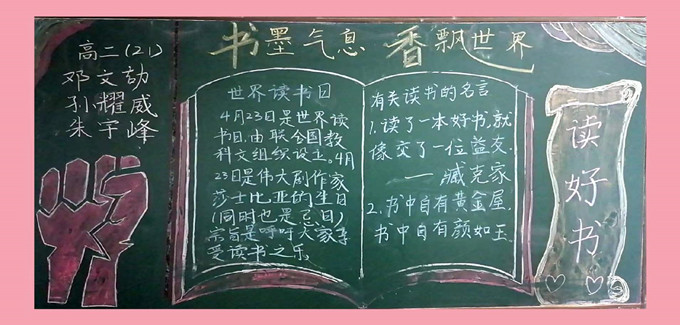 书墨气息 香飘世界
高二(21)
邓文
孙耀威
朱宇峰
世界读书日
4月23日是世界读
书日,由联合国教
科文组织设立。4月
23日是伟大剧作家
莎士比亚的生日
(同时也是忌日)
宗旨是呼吁大家享
受读书之乐.
有关读书的名言
1.读了一本好书,就
像交了一位益友.
——臧克家
2.书中自有黄金屋,
书中自有颜如玉.
读好书